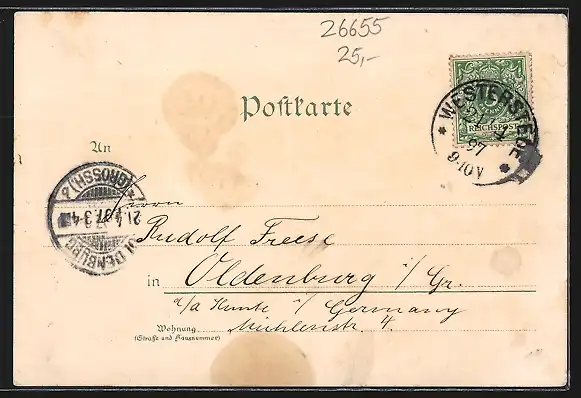 26655
25,-
Postkarte
WESTERSTEDE
21/4
97
9-10V
REICHSPOST
An
Herrn
Rudolf Freese
in Oldenburg i/Gr.
d/a Hunte i/Germany
Mühlenstr. 4.
Wohnung
(Straße und Hausnummer)
OLDENBURG
(GROSSH) 2
21.4.97.3-4